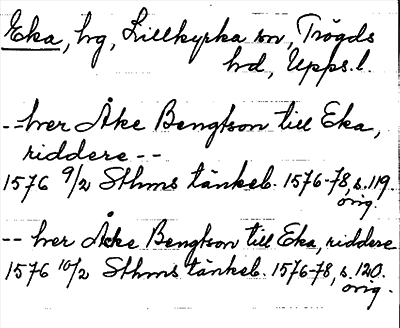 Eka, hg, Lillkyrka sn, Trögds
hd, Upps.l.
-- her Åke Bengtson till Eka,
riddere --
1576 9/2 Sthms tänkeb. 1576-78, s. 119.
orig.
-- her Åke Bengtson till Eka, riddere
1576 10/2 Sthms tänkeb. 1576-78, s. 120.
orig.